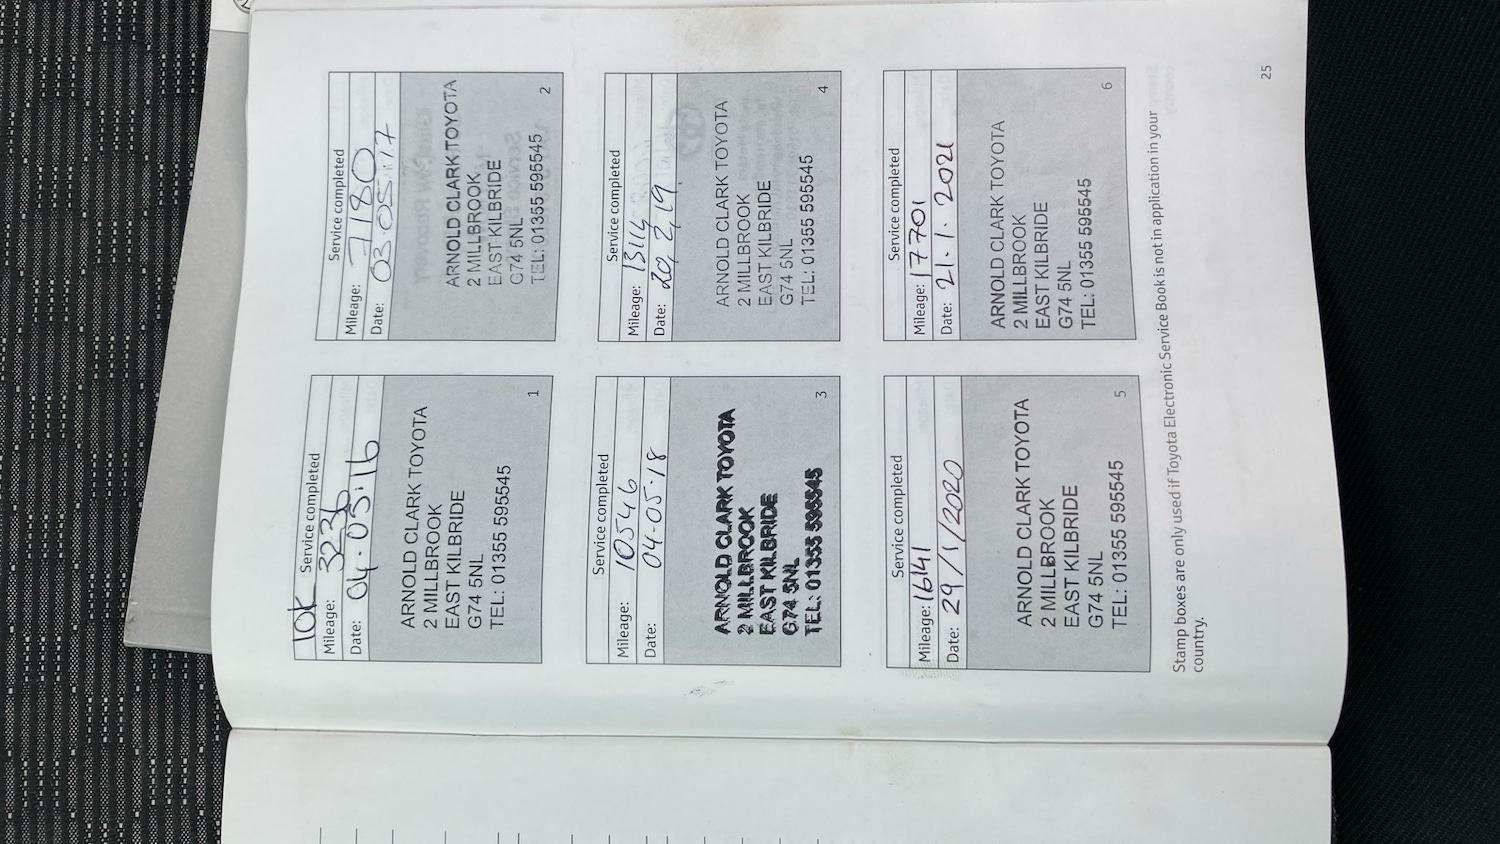 10K Service completed
Mileage: 3236
Date: 04.05.16
ARNOLD CLARK TOYOTA
2 MILLBROOK
EAST KILBRIDE
G74 5NL
TEL: 01355 595545
1
Service completed
Mileage: 7180
Date: 03.05.17
ARNOLD CLARK TOYOTA
2 MILLBROOK
EAST KILBRIDE
G74 5NL
TEL: 01355 595545
2
Service completed
Mileage: 10546
Date: 04-05-18
ARNOLD CLARK TOYOTA
2 MILLBROOK
EAST KILBRIDE
G74 5NL
TEL: 01355 595545
3
Service completed
Mileage: 13114
Date: 20,2,19.
ARNOLD CLARK TOYOTA
2 MILLBROOK
EAST KILBRIDE
G74 5NL
TEL: 01355 595545
4
Service completed
Mileage: 16141
Date: 29/1/2020
ARNOLD CLARK TOYOTA
2 MILLBROOK
EAST KILBRIDE
G74 5NL
TEL: 01355 595545
5
Service completed
Mileage: 17701
Date: 21.1.2021
ARNOLD CLARK TOYOTA
2 MILLBROOK
EAST KILBRIDE
G74 5NL
TEL: 01355 595545
6
Stamp boxes are only used if Toyota Electronic Service Book is not in application in your
country.
25